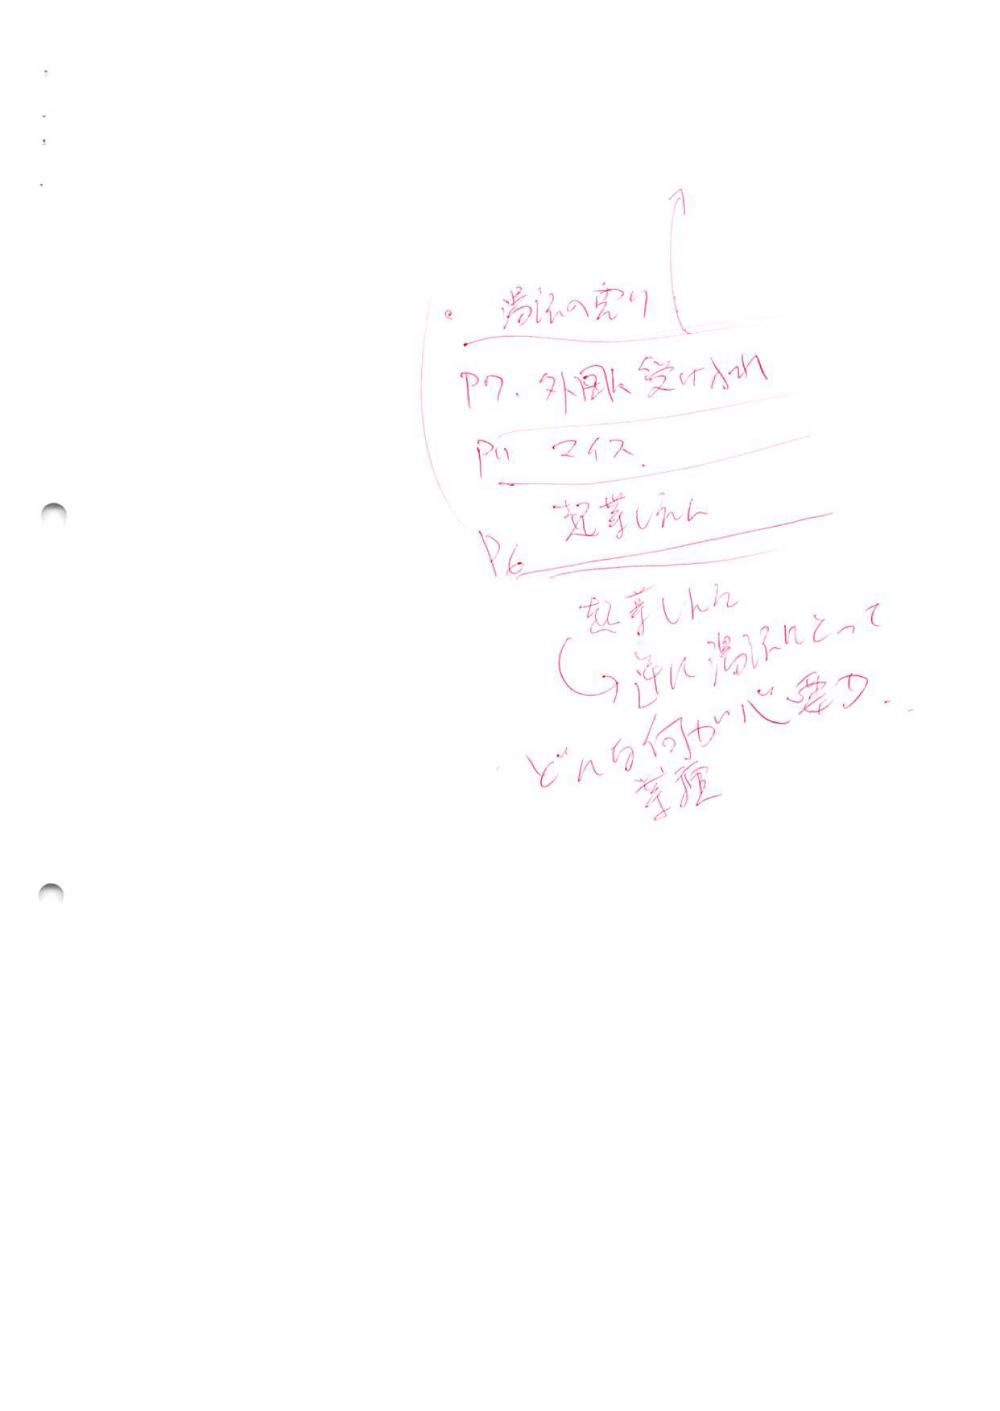 ・ 湯沢の売り
P7. 外国人 受け入れ
P11 マイス.
起業しえん
P6
起業しえん
逆に湯沢にとって
どんな何が必要か..
業種